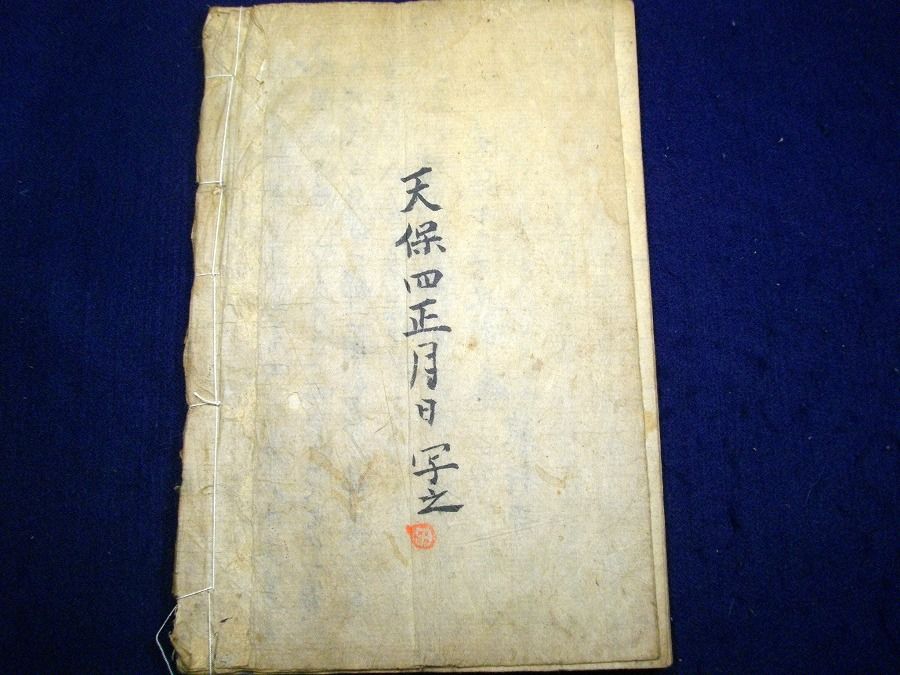 天保四正月日写之